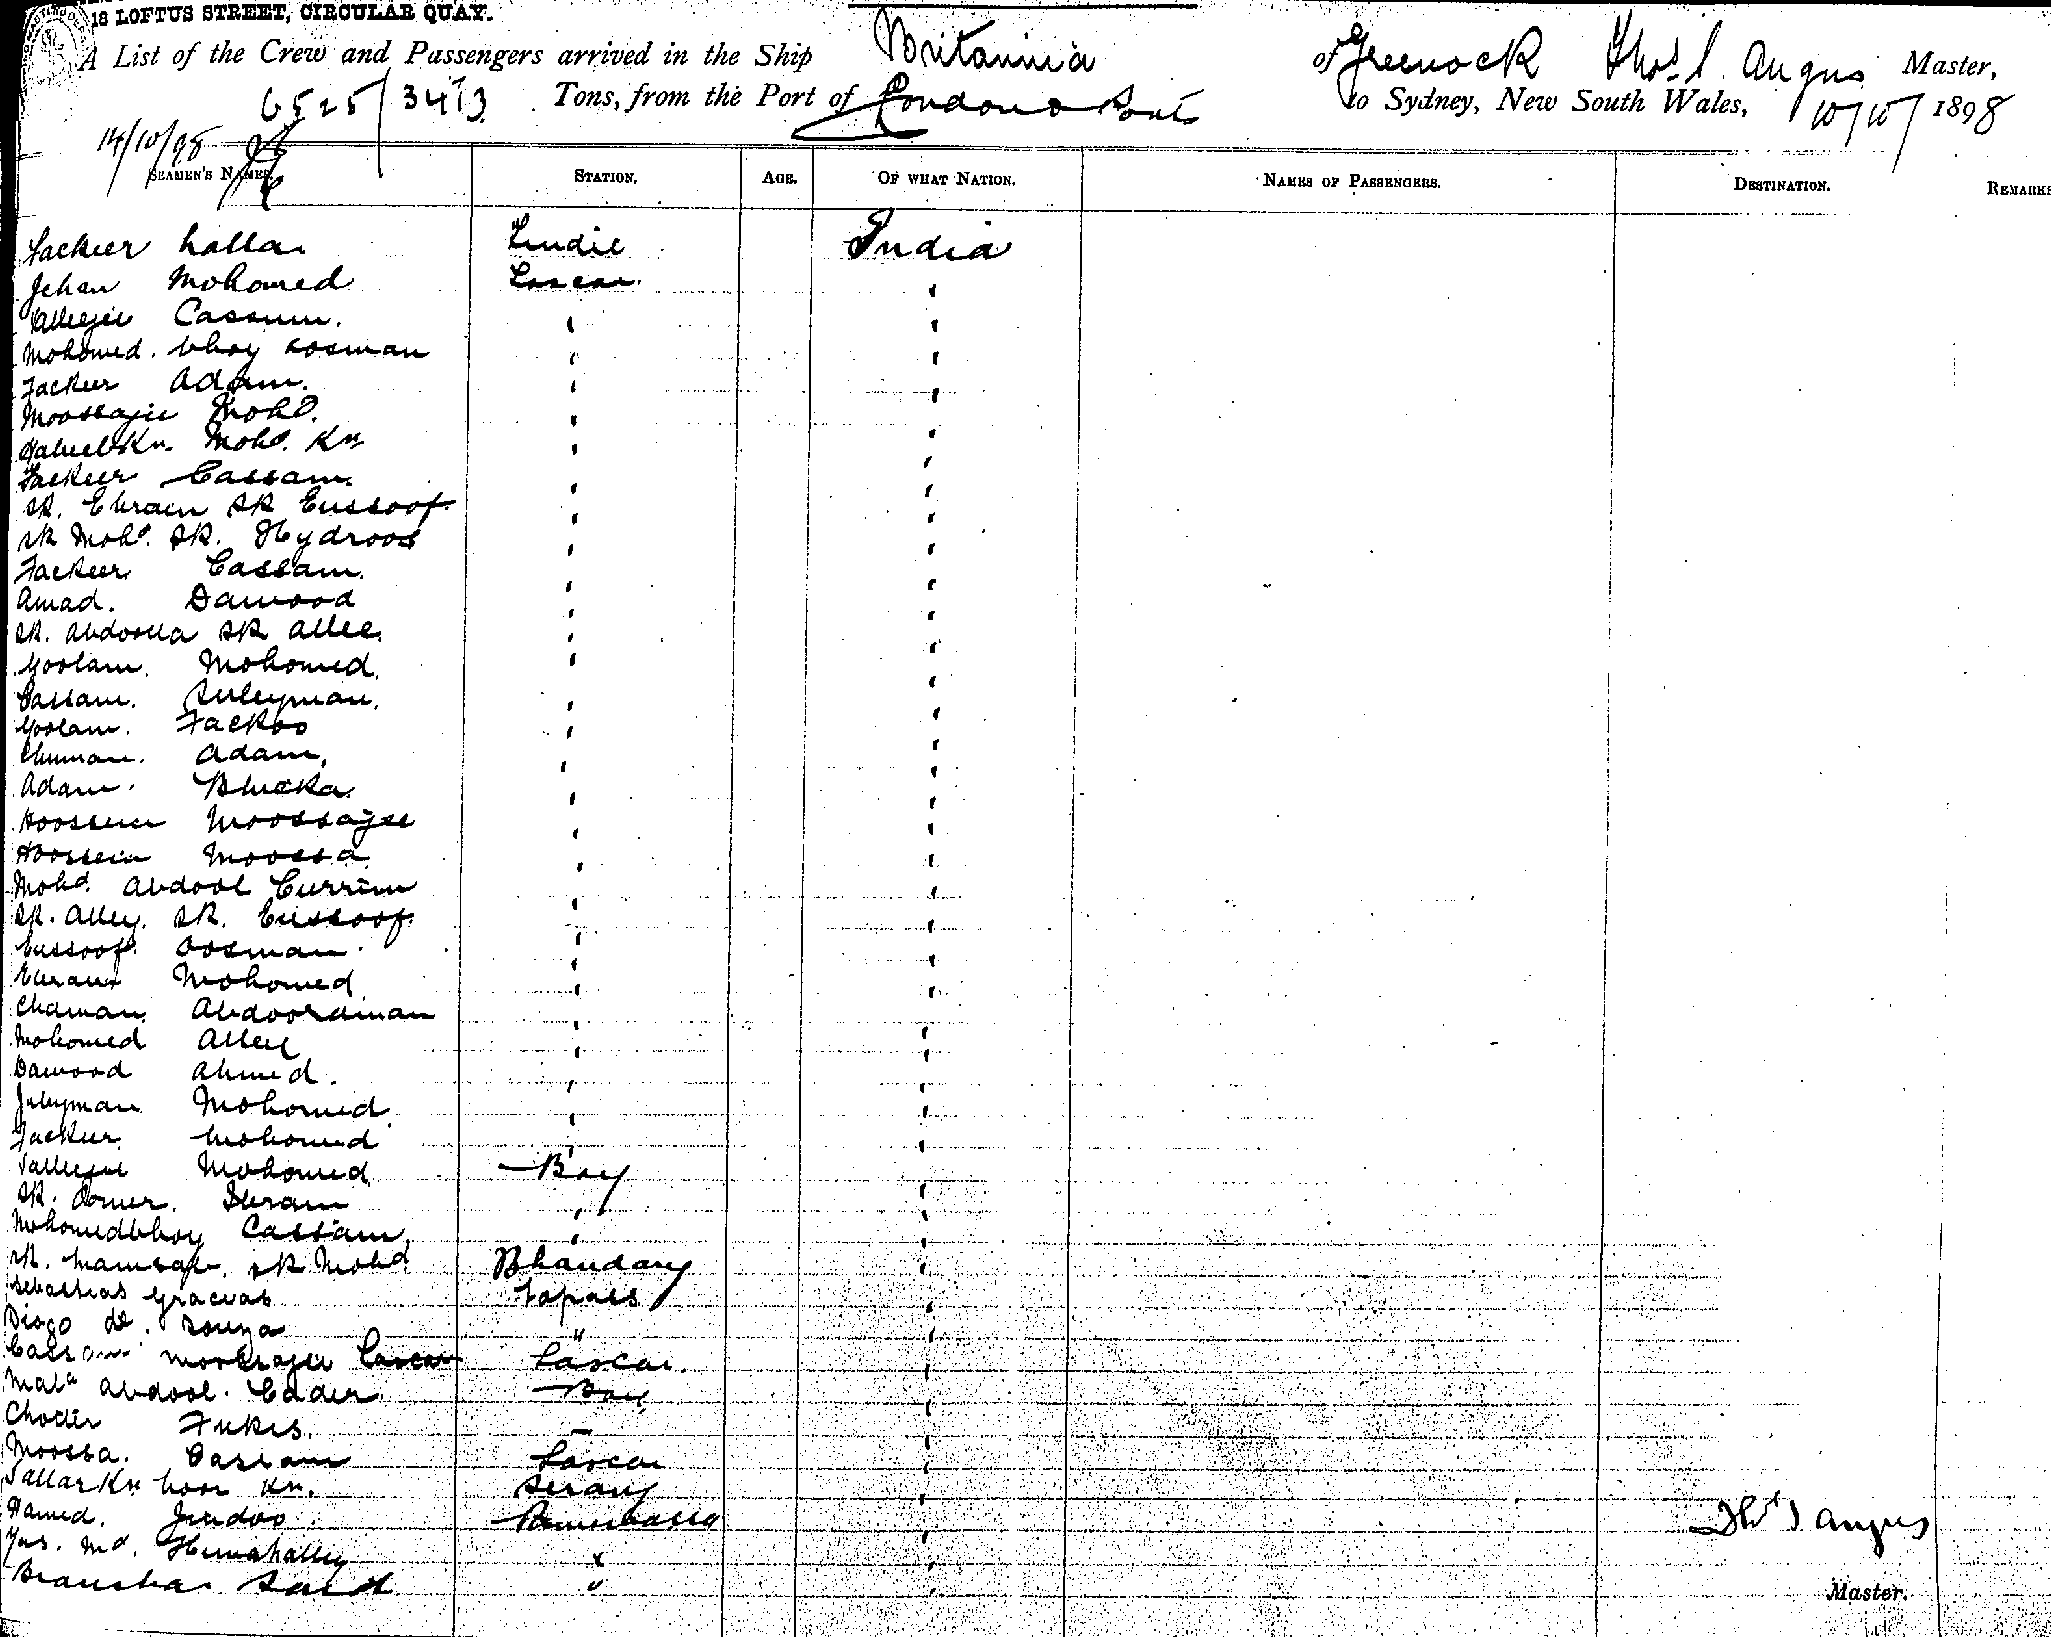 18 LOFTUS STREET, CIRCULAR QUAY.
A List of the Crew and Passengers arrived in the Ship Britannia of Greenock Thos. S. Angus Master,
6525/3473 Tons, from the Port of London & Ports to Sydney, New South Wales, 10/10/ 1898
14/10/98
SEAMEN'S NAMES. STATION. AGE. OF WHAT NATION. NAMES OF PASSENGERS. DESTINATION. REMARKS
Fackeer India
Jehan Mohomed Lascar "
Cassum. " "
Mohomed. bhoy Oosman " "
Fackeer Adam. " "
Moossajee Mohd. " "
Mohd. Kn " "
Fackeer Cassam. " "
SK. Ebram SK Eussoof " "
SK Mohd. SK. Hydroos " "
Fackeer Cassam. " "
Amad. Dawood " "
SK. Abdoolla SK Allee. " "
Goolam. Mohomed. " "
Cassam. Suleyman. " "
Goolam. Fackoo " "
Adam. " "
Adam. Bhicka " "
Hoossein Moossajee " "
Hoossein Moossa " "
Mohd. Abdool Currim " "
SK. Alley. SK. Eussoof " "
Eussoof. Oosman " "
Ebram Mohomed " "
Abdooraman " "
Mohomed Allee " "
Dawood Ahmed. " "
Suleyman Mohomed " "
Fackeer Mohomed " "
Valleejee Mohomed Boy "
SK. Oomer. Ibram " "
Mohomedbhoy Cassam, " "
SK. SK Mohd Bhandary "
Sebastias Gracias Topass "
Diogo de. Souza " "
Cassam Moossajee Lascar Lascar. "
Abdool. Cader Boy "
Moossa. Cassam Lascar "
Sattar Kn Noor Kn. Serang "
Hamed. "
" "
Said " "
Thos S Angus
Master.